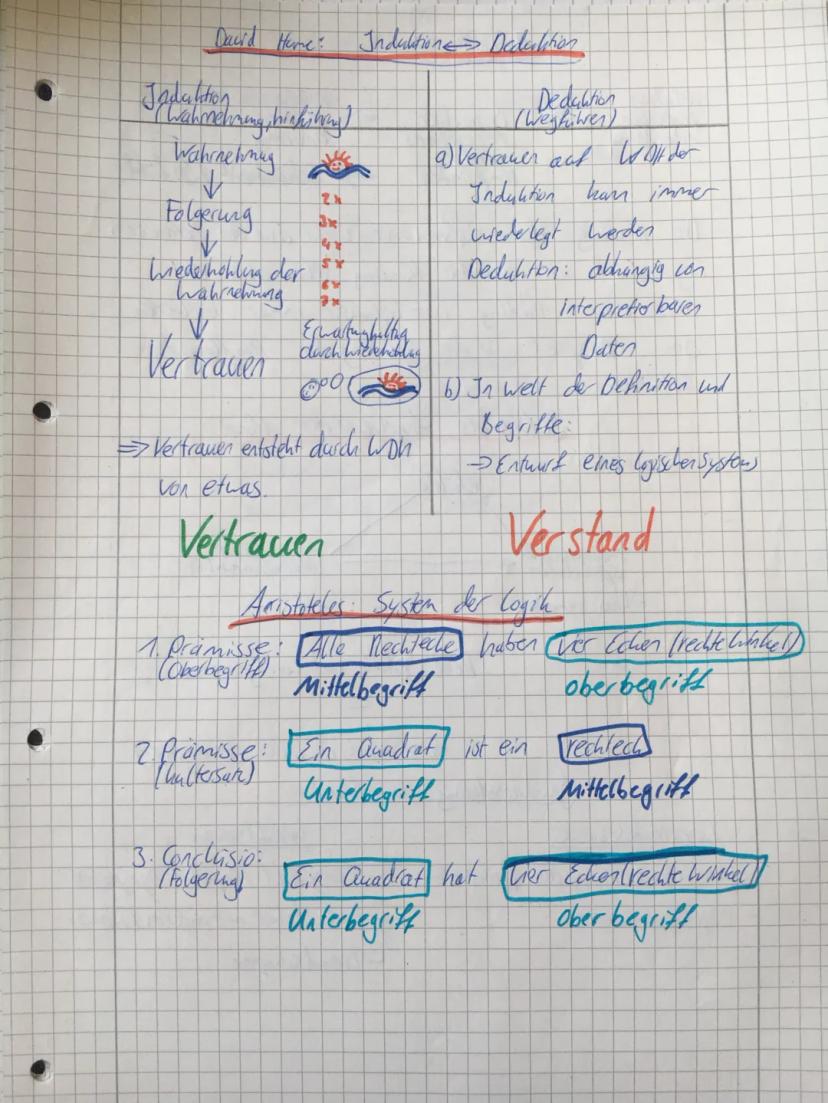 David Hume: Induktion <-> Deduktion
Induktion
(Wahrnehmung, hinführung)
Wahrnehmung
↓
Folgerung
↓
Wiederhohlung der
Wahrnehmung
↓
Vertrauen
2x
3x
4x
5x
6x
7x
durch wiederhohlung
=> Vertrauen entsteht durch WDH
von etwas.
Vertrauen
Deduktion
(Wegführen)
a) Vertrauen auf WDH der
Induktion kann immer
wiederlegt werden
Deduktion: abhängig von
interpretierbaren
Daten
b) In Welt der Definition und
Begriffe:
-> Entwurf eines logischen Systems
Verstand
Aristoteles: System der Logik
1. Prämisse: Alle Rechtecke haben Vier Ecken (rechte Winkel)
(Oberbegriff) Mittelbegriff Oberbegriff
2. Prämisse: Ein Quadrat ist ein rechteck
Unterbegriff Mittelbegriff
3. Conclusio: Ein Quadrat hat Vier Ecken (rechte Winkel)
(Folgerung) Unterbegriff Oberbegriff